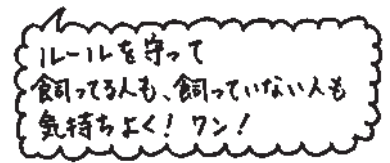 ルールを守って
飼ってる人も、飼っていない人も
気持ちよく！ワン！